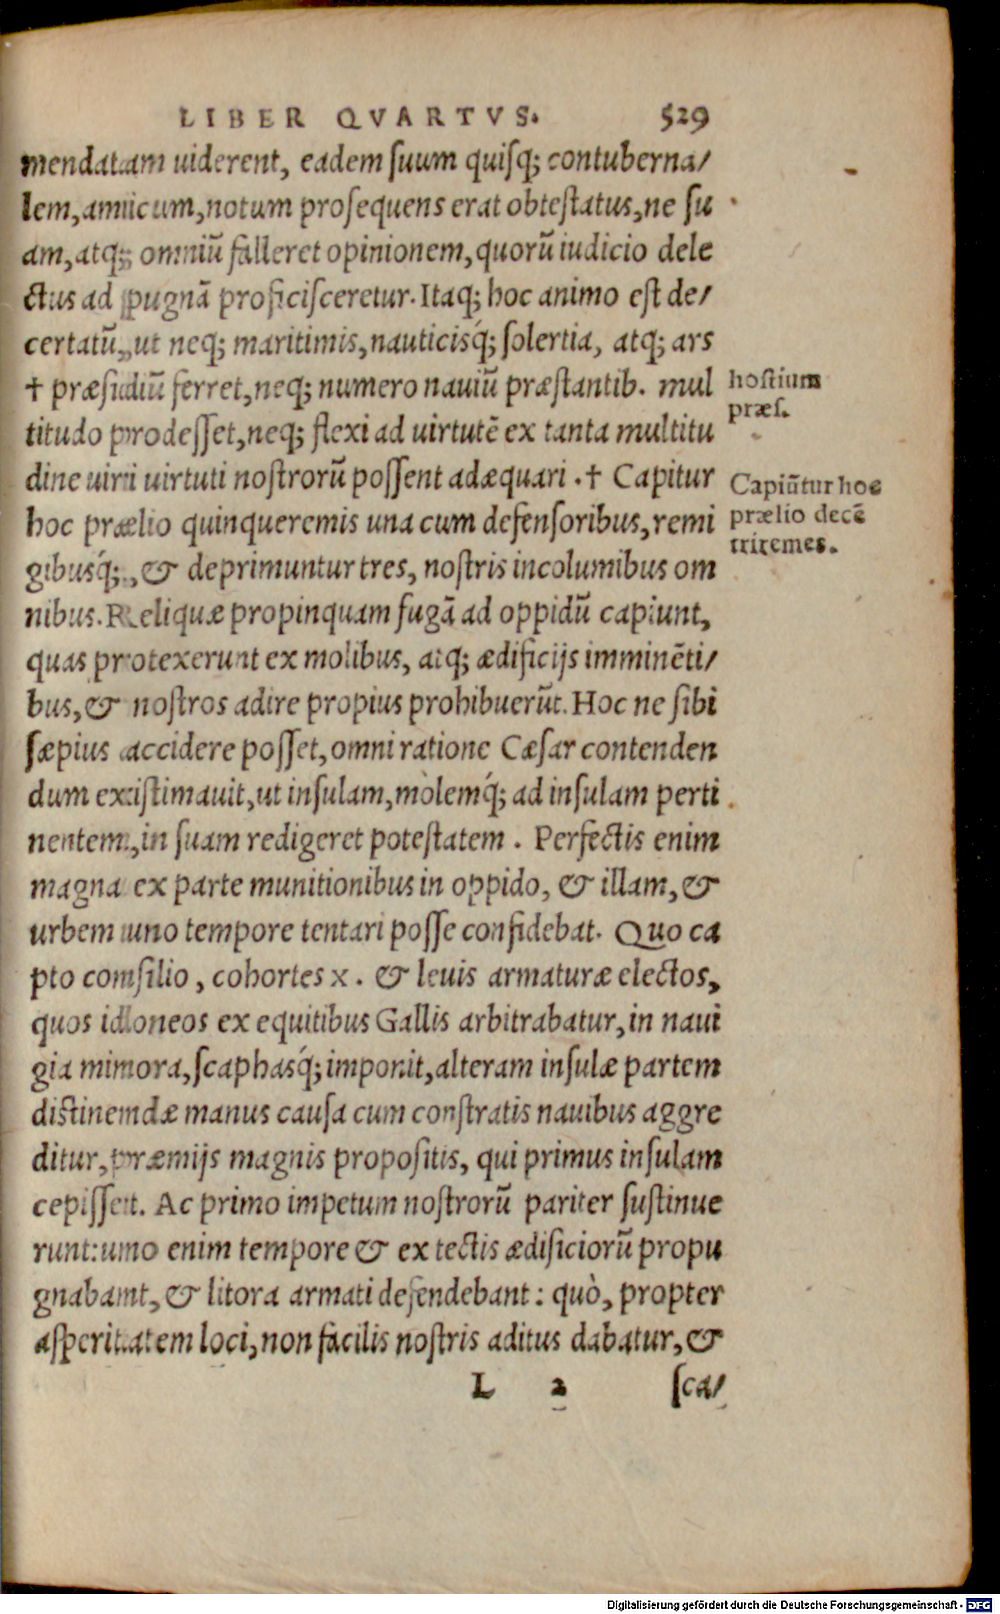 LIBER QVARTVS. 529
mendatam uiderent, eadem ſuum quiſq; contuberna/
lem, amicum, notum proſequens erat obteſtatus, ne ſu
am, atq; omniũ falleret opinionem, quorũ iudicio dele
ctus ad pugnã proficiſceretur. Itaq; hoc animo eſt de/
certatũ, ut neq; maritimis, nauticisq́; ſolertia, atq; ars
† præſidiũ ferret, neq; numero nauiũ præſtantib. mul
titudo prodeſſet, neq; flexi ad uirtutẽ ex tanta multitu
dine uiri uirtuti noſtrorũ poſſent adæquari. † Capitur
hoc prælio quinqueremis una cum defenſoribus, remi
gibusq́;, & deprimuntur tres, noſtris incolumibus om
nibus. Reliquæ propinquam fugã ad oppidũ capiunt,
quas protexerunt ex molibus, atq; ædificijs imminẽti/
bus, & noſtros adire propius prohibuerũt. Hoc ne ſibi
ſæpius accidere poſſet, omni ratione Cæſar contenden
dum exiſtimauit, ut inſulam, molemq́; ad inſulam perti
nentem, in ſuam redigeret poteſtatem. Perfectis enim
magna ex parte munitionibus in oppido, & illam, &
urbem uno tempore tentari poſſe confidebat. Quo ca
pto conſilio, cohortes x. & leuis armaturæ electos,
quos idoneos ex equitibus Gallis arbitrabatur, in naui
gia minora, ſcaphasq́; imponit, alteram inſulæ partem
diſtinendæ manus cauſa cum conſtratis nauibus aggre
ditur, præmijs magnis propoſitis, qui primus inſulam
cepiſſet. Ac primo impetum noſtrorũ pariter ſuſtinue
runt: uno enim tempore & ex tectis ædificiorũ propu
gnabant, & litora armati defendebant: quò, propter
aſperitatem loci, non facilis noſtris aditus dabatur, &
L 2 ſca/
hoſtium
præſ.
Capiũtur hoc
prælio decẽ
triremes.
Digitalisierung gefördert durch die Deutsche Forschungsgemeinschaft - DFG